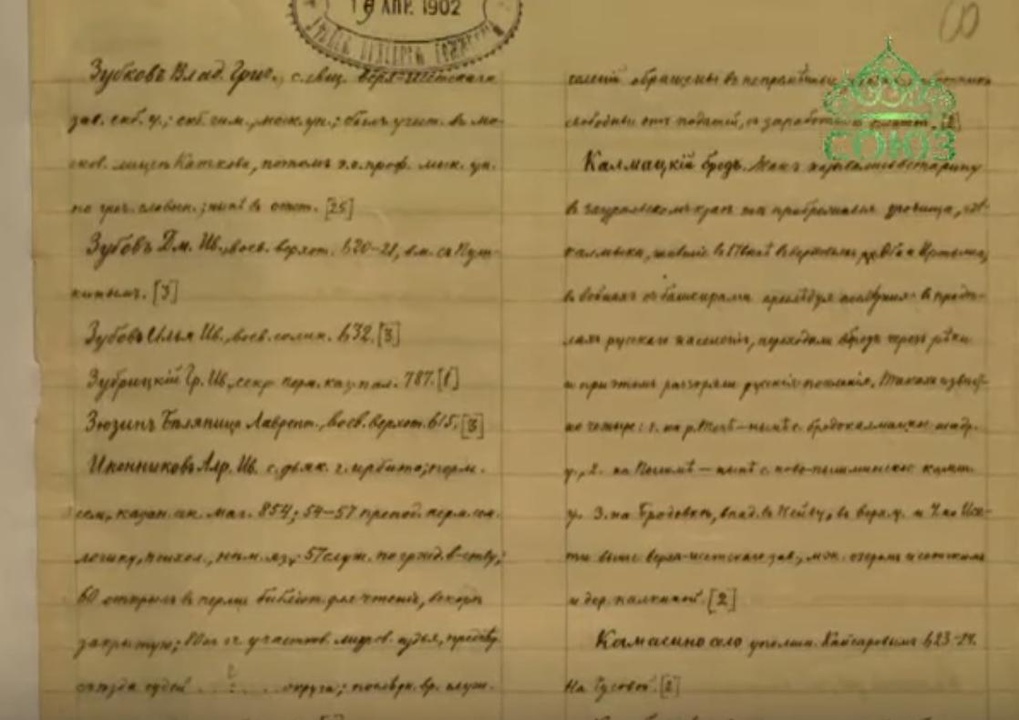 19 АПР. 1902
СОЮЗ
Зубковъ Влад. Григ., с. свящ. верх-исетскаго
зав. екб. у.; екб. сем., моск. ун.; былъ учит. въ мо-
сков. лицеѣ Каткова, потомъ э.о. проф. моск. ун.
по греч. словесн.; нынѣ въ отст. [25]
Зубовъ Дм. Ив., воев. верхот. 620-21, вм. съ Пуш-
кинымъ. [3]
Зубовъ Илья Ив., воев. соликам. 632. [3]
Зубрицкій Гр. Ив., секр. перм. каз. пал. 787. [1]
Зюзинъ Беляница Лаврент., воев. верхот. 615. [3]
Иконниковъ Алр. Ив. с. дьяк. г. ирбита; перм.
сем., казан. ак. маг. 854; 54-57 препод. перм. сем.
логику, психол., нѣм. яз.; 57 служ. по гражд. в-ству;
60 открылъ въ перми библіот. для чтенія, вскорѣ
закрытую; участв. миров. судья, предсѣд.
съѣзда судей округа; послѣдн. вр. служ.
обращены въ
свободны отъ податей, съ заработ [2]
Калмацкій бродъ. Такъ назывались встарину
въ зауральскомъ краѣ тѣ прибрежныя урочища, гдѣ
калмыки, жившіе въ въ верховьяхъ Иртыша,
въ войнахъ съ башкирами преслѣдуя въ предѣ-
лахъ русскаго населенія, переходили вбродъ черезъ рѣки
и при этомъ разоряли русскія поселенія. Такихъ извѣст-
но четыре: 1. на р. Течѣ — нынѣ с. бродокалмацкое шадр.
у., 2. на Пышмѣ — нынѣ с. ново-пышминское камы.
у. 3. на Бродовкѣ, впад. въ Нейву, въ верх. у. и 4. по Исе-
ти выше верх-исетскаго зав., меж. озеромъ исетскимъ
и дер. палкиной. [2]
Камасино село упомин. Кайсаровымъ 623-24.
На Чусовой. [2]